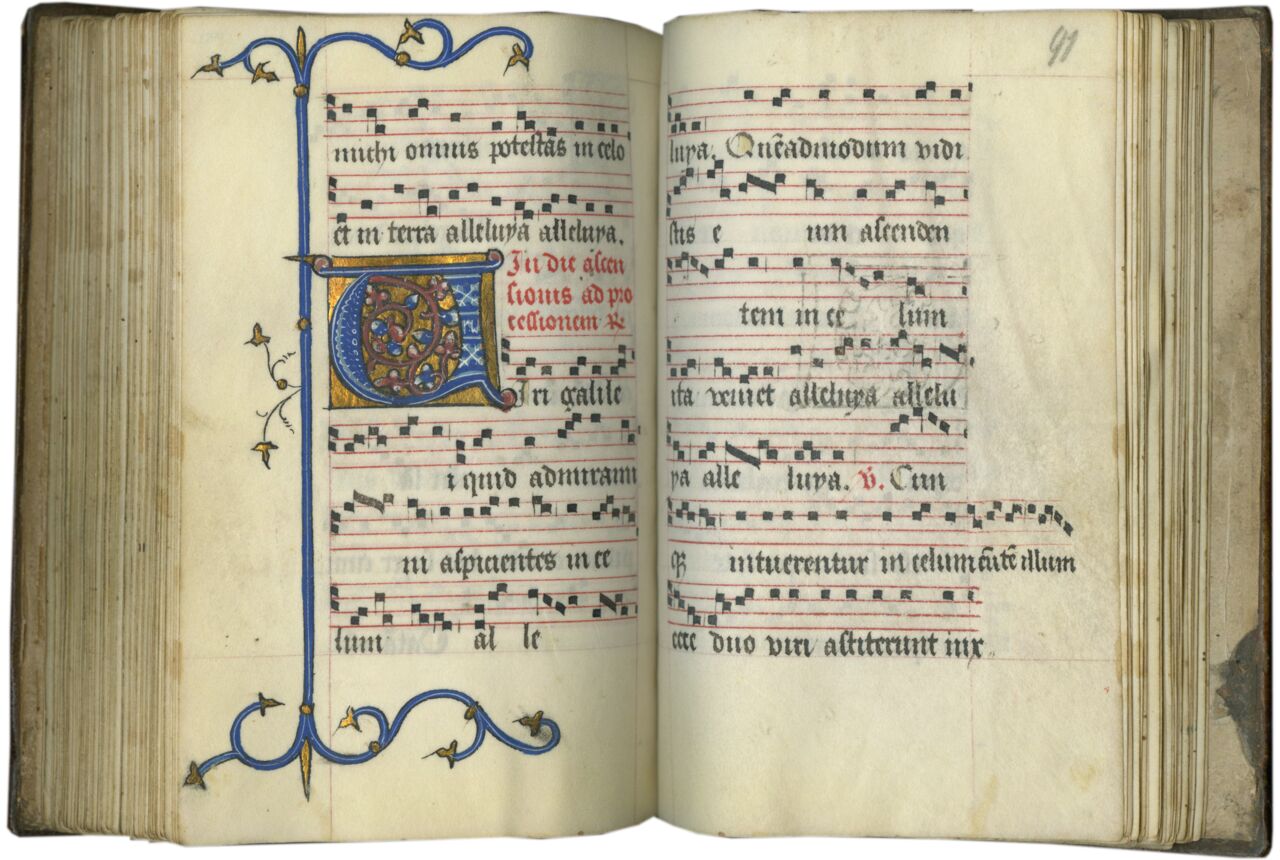 michi omnis potestas in celo
et in terra alleluya alleluya.
In die ascen
sionis ad pro
cessionem ℟
Viri galile
i quid admirami
ni aspicientes in ce
lum al le
91
luya. Quēadmodum vidi
stis e um ascenden
tem in ce lum
ita veniet alleluya allelu
ya alle luya. ℣. Cun
intuerentur in celum eūtē illum
ecce duo viri astiterunt iux